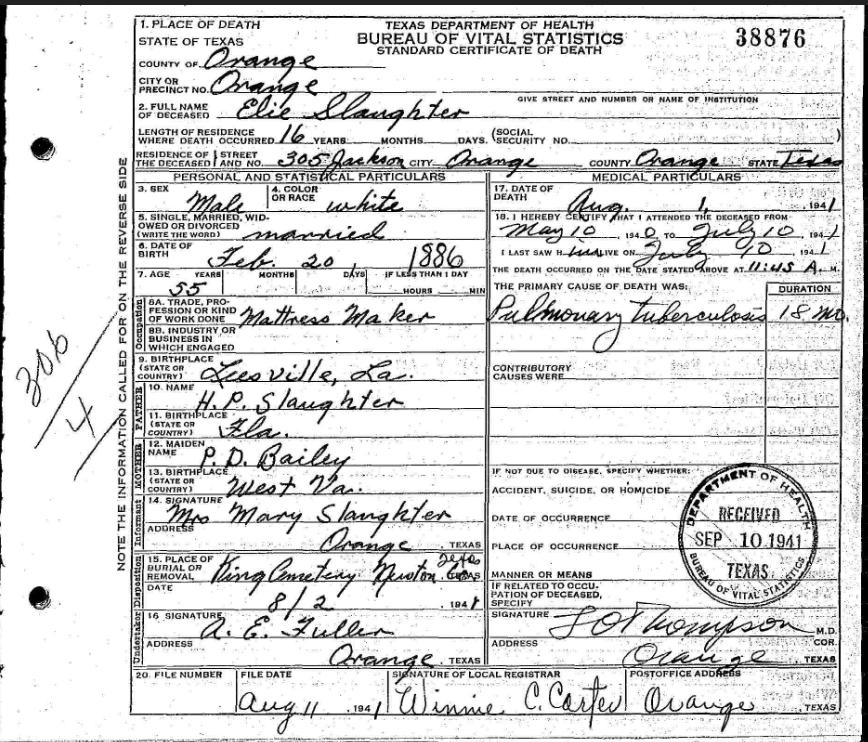 1. PLACE OF DEATH
STATE OF TEXAS
TEXAS DEPARTMENT OF HEALTH
BUREAU OF VITAL STATISTICS
STANDARD CERTIFICATE OF DEATH
38876
COUNTY OF Orange
CITY OR PRECINCT NO. Orange
GIVE STREET AND NUMBER OR NAME OF INSTITUTION
2. FULL NAME OF DECEASED Elie Slaughter
LENGTH OF RESIDENCE WHERE DEATH OCCURRED 16 YEARS MONTHS DAYS. (SOCIAL SECURITY NO. )
RESIDENCE OF THE DECEASED STREET AND NO. 305 Jackson CITY Orange COUNTY Orange STATE Texas
PERSONAL AND STATISTICAL PARTICULARS
3. SEX Male 4. COLOR OR RACE white
5. SINGLE, MARRIED, WIDOWED OR DIVORCED (WRITE THE WORD) married
6. DATE OF BIRTH Feb. 20, 1886
7. AGE YEARS MONTHS DAYS IF LESS THAN 1 DAY
55 HOURS MIN
Occupation
8A. TRADE, PROFESSION OR KIND OF WORK DONE Mattress Maker
8B. INDUSTRY OR BUSINESS IN WHICH ENGAGED
9. BIRTHPLACE (STATE OR COUNTRY) Leesville, La.
FATHER
10. NAME H. P. Slaughter
11. BIRTHPLACE (STATE OR COUNTRY) Fla.
MOTHER
12. MAIDEN NAME P. D. Bailey
13. BIRTHPLACE (STATE OR COUNTRY) West Va.
Informant
14. SIGNATURE Mrs Mary Slaughter
ADDRESS Orange, TEXAS
Disposition
15. PLACE OF BURIAL OR REMOVAL King Cemetery Newton Co TEXAS
DATE 8/2, 1941
Undertaker
16 SIGNATURE A. E. Fuller
ADDRESS Orange, TEXAS
MEDICAL PARTICULARS
17. DATE OF DEATH Aug. 1, 1941
18. I HEREBY CERTIFY THAT I ATTENDED THE DECEASED FROM
May 10 1940 TO July 10 1941
I LAST SAW HIM ALIVE ON July 10 1941
THE DEATH OCCURRED ON THE DATE STATED ABOVE AT 11:45 A. M.
THE PRIMARY CAUSE OF DEATH WAS: DURATION
Pulmonary tuberculosis 18 mo.
CONTRIBUTORY CAUSES WERE
IF NOT DUE TO DISEASE, SPECIFY WHETHER:
ACCIDENT, SUICIDE, OR HOMICIDE
DATE OF OCCURRENCE
PLACE OF OCCURRENCE
MANNER OR MEANS
IF RELATED TO OCCUPATION OF DECEASED, SPECIFY
SIGNATURE Thompson M.D. COR.
ADDRESS Orange, TEXAS
DEPARTMENT OF HEALTH
RECEIVED
SEP 10 1941
TEXAS.
BUREAU OF VITAL STATISTICS
20. FILE NUMBER FILE DATE SIGNATURE OF LOCAL REGISTRAR POSTOFFICE ADDRESS
Aug 11 1941 Winnie C. Carter Orange, TEXAS
NOTE THE INFORMATION CALLED FOR ON THE REVERSE SIDE
306
4